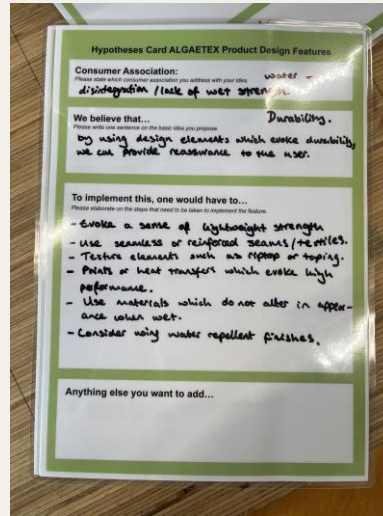 Hypotheses Card ALGAETEX Product Design Features
Consumer Association:
Please state which consumer association you address with your idea.
water →
disintegration / lack of wet strength.
We believe that...
Durability.
Please write one sentence on the basic idea you propose.
by using design elements which evoke durability,
we can provide reassurance to the user.
To implement this, one would have to...
Please elaborate on the steps that need to be taken to implement the feature.
- Evoke a sense of lightweight strength
- use seamless or reinforced seams/textiles.
- Texture elements such as riptop or taping.
- Prints or heat transfers which evoke high
performance.
- Use materials which do not alter in appear-
ance when wet.
- Consider using water repellent finishes.
Anything else you want to add...